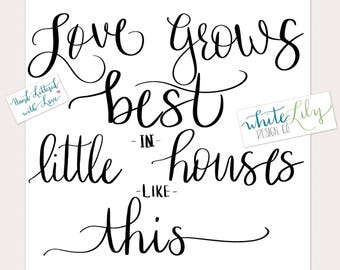 Love Grows
Hand Lettered
with Love
best
white Lily
DESIGN CO
-IN-
little houses
-LIKE-
this